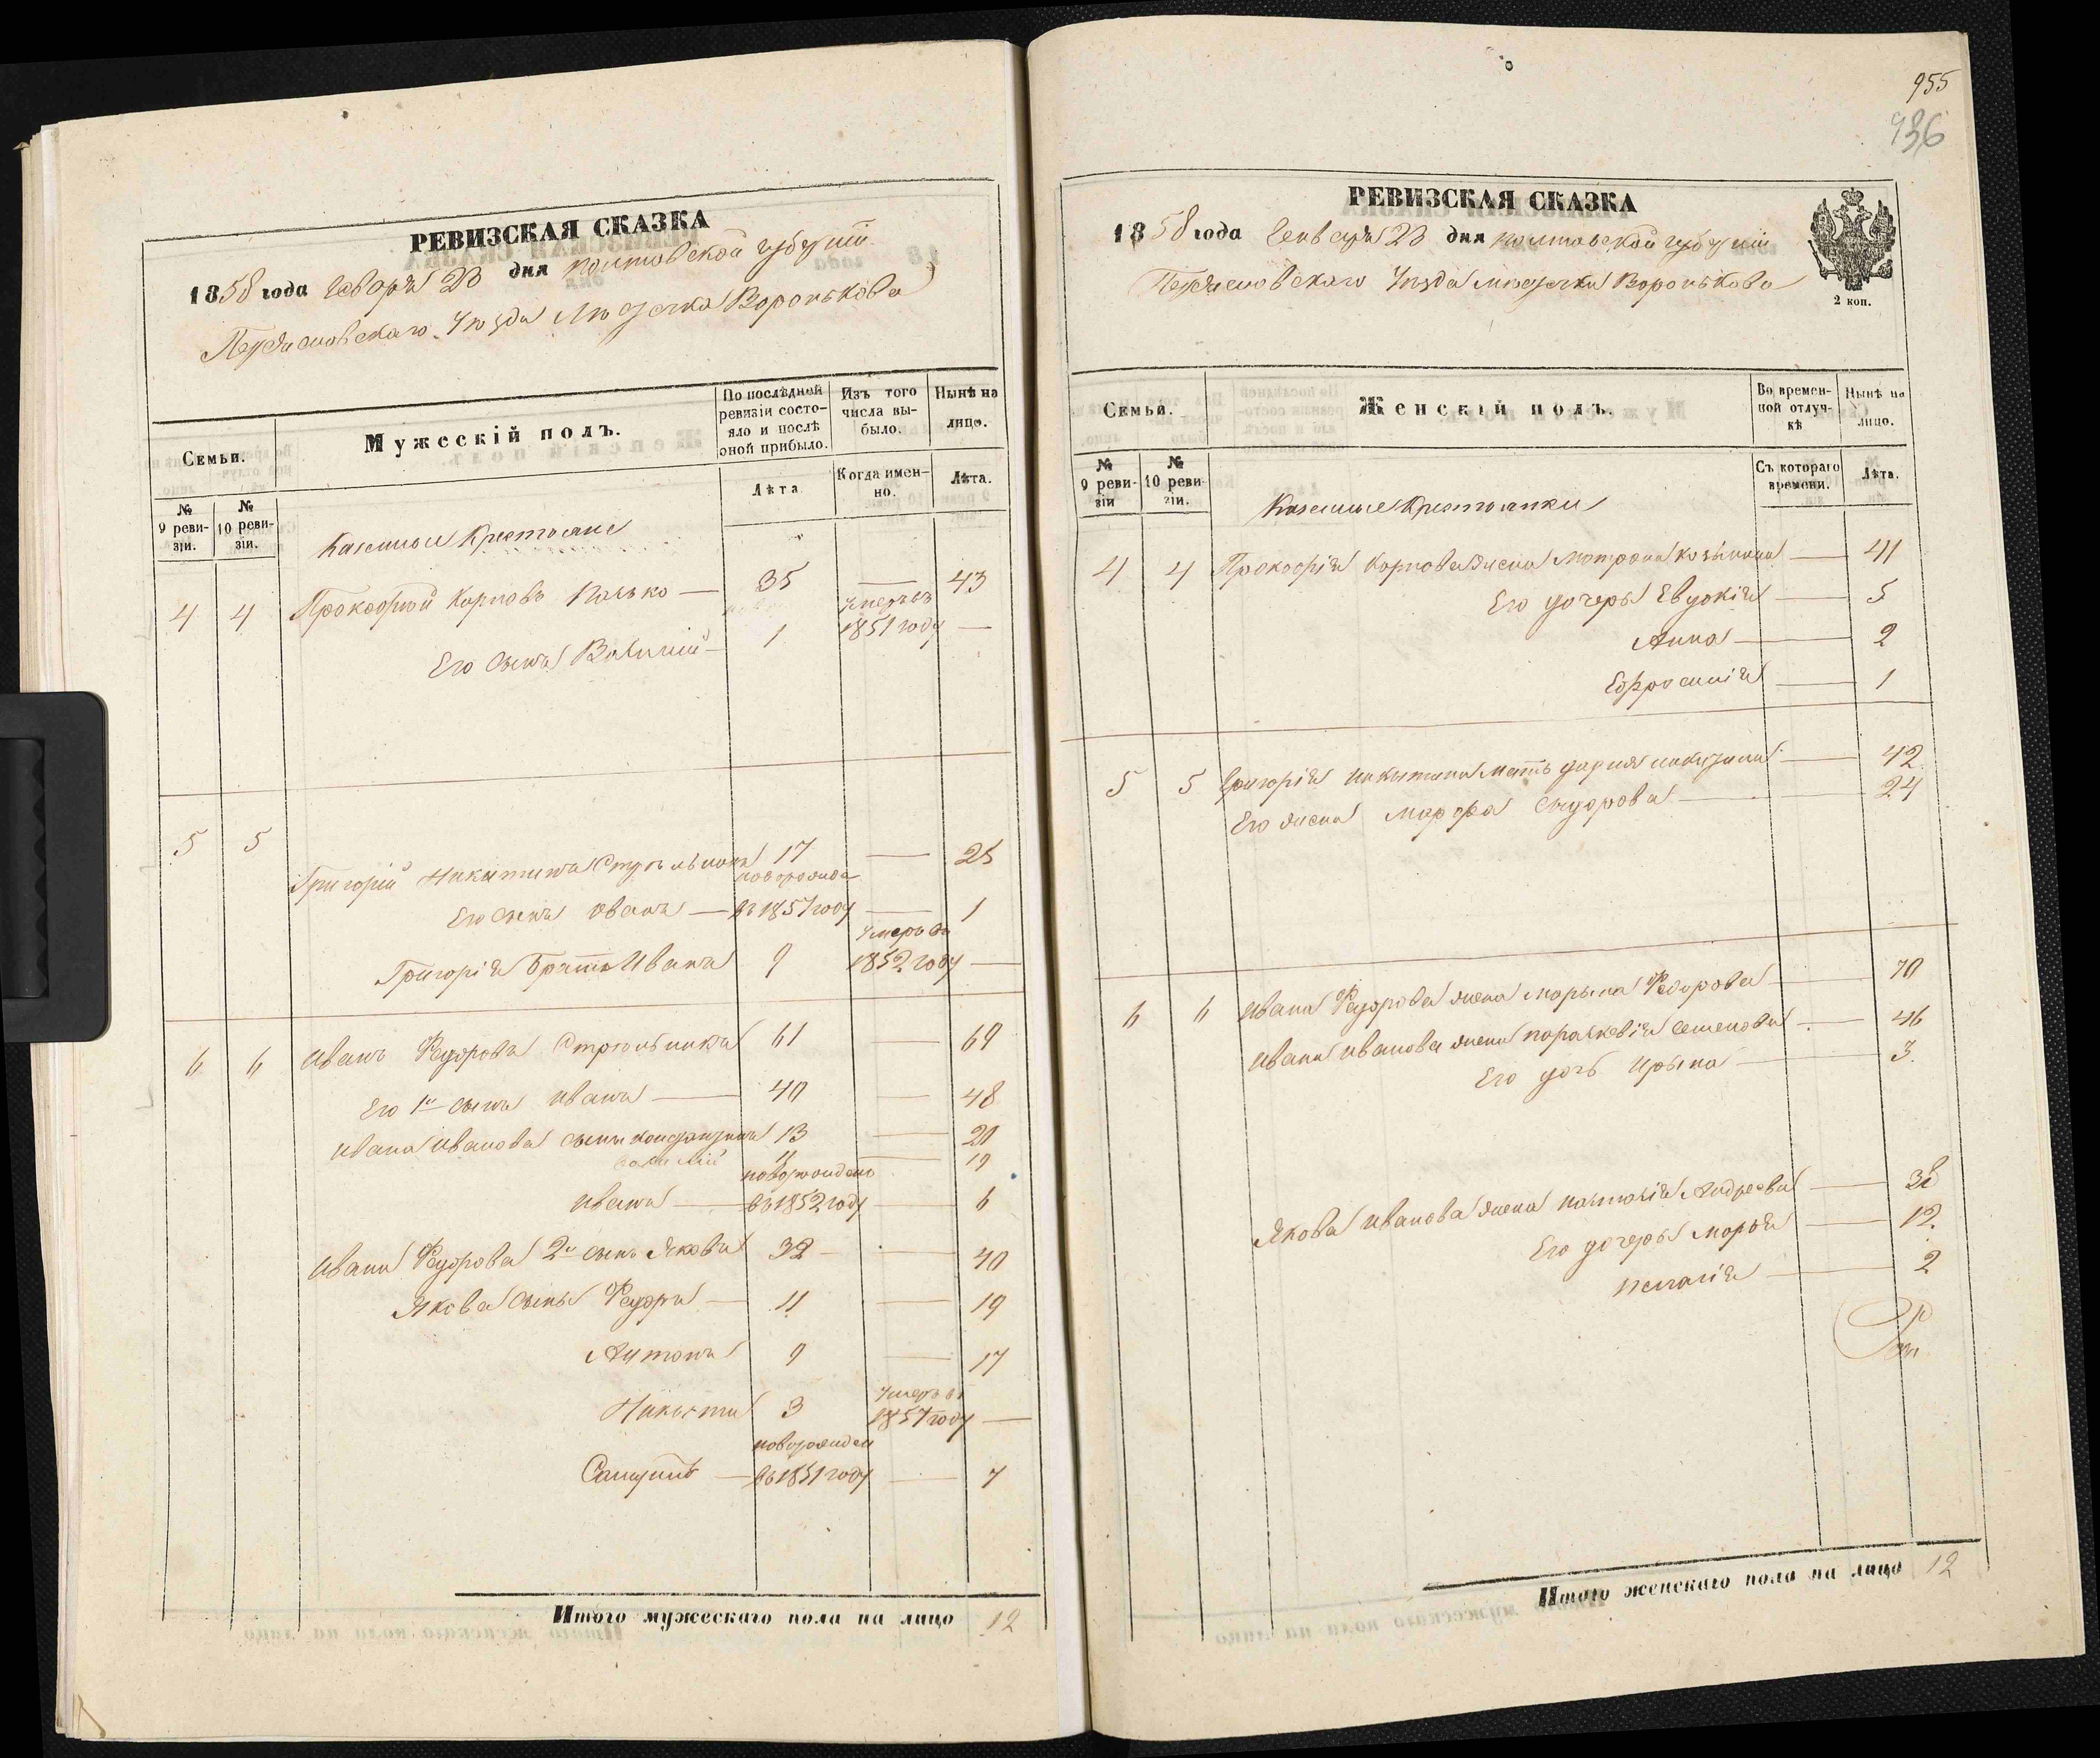 РЕВИЗСКАЯ СКАЗКА
1858 года Генваря 23 дня Полтавской губернии
Переяславскаго Уезда Местечка Воронькова
Семьи.
Мужескій полъ.
По послѣдней ревизіи состо-
яло и послѣ оной прибыло.
Изъ того числа вы-
было.
Нынѣ на лицо.
№ 9 реви-
зіи.
№ 10 реви-
зіи.
Лѣта
Когда имен-
но.
Лѣта.
Казенные Крестьяне
4 4 Прокофий Карповъ 35 — 43
Его сынъ 1 умеръ въ 1851 году —
5 5 Григорій Никитинъ 17 — 25
Его сынъ Иванъ — новорожден въ 1857 году — 1
Григорія братъ Иванъ 9 умеръ въ 1852 году —
6 6 Иванъ Федоровъ Стрельникъ 61 — 69
Его 1й сынъ Иванъ — 40 — 48
Ивана Иванова сыны 13 — 20
11 — 19
Иванъ — новорожденъ въ 1852 году — 6
Ивана Федорова 2й сынъ Яковъ 32 — 40
Якова сыны Федоръ — 11 — 19
Антонъ 9 — 17
Никита 3 умеръ въ 1857 году —
новорожден въ 1851 году — 7
Итого мужескаго пола на лицо 12
955
936
РЕВИЗСКАЯ СКАЗКА
1858 года Генваря 23 дня Полтавской губернии
Переяславскаго Уезда местечка Воронькова
2 коп.
Семьи.
Женскій полъ.
Во времен-
ной отлуч-
кѣ
Нынѣ на лицо.
№ 9 реви-
зіи
№ 10 реви-
зіи.
Съ котораго времени.
Лѣта.
Казенные Крестьянки
4 4 Прокофія Карпова жена Матрона Козьмина — 41
Его дочери Евдокія — 5
Анна — 2
Ефросинія — 1
5 5 Григорія Никитина мать Дарья — 42
Его жена Марфа Сидорова — 24
6 6 Ивана Федорова жена Марына Федорова — 70
Ивана Иванова жена Параскевія Семенова — 46
Его дочь Ирына — 3
Якова Иванова жена Наталія Андреева — 38
Его дочери Марья — 12
Пелагія — 2
Итого женскаго пола на лицо 12